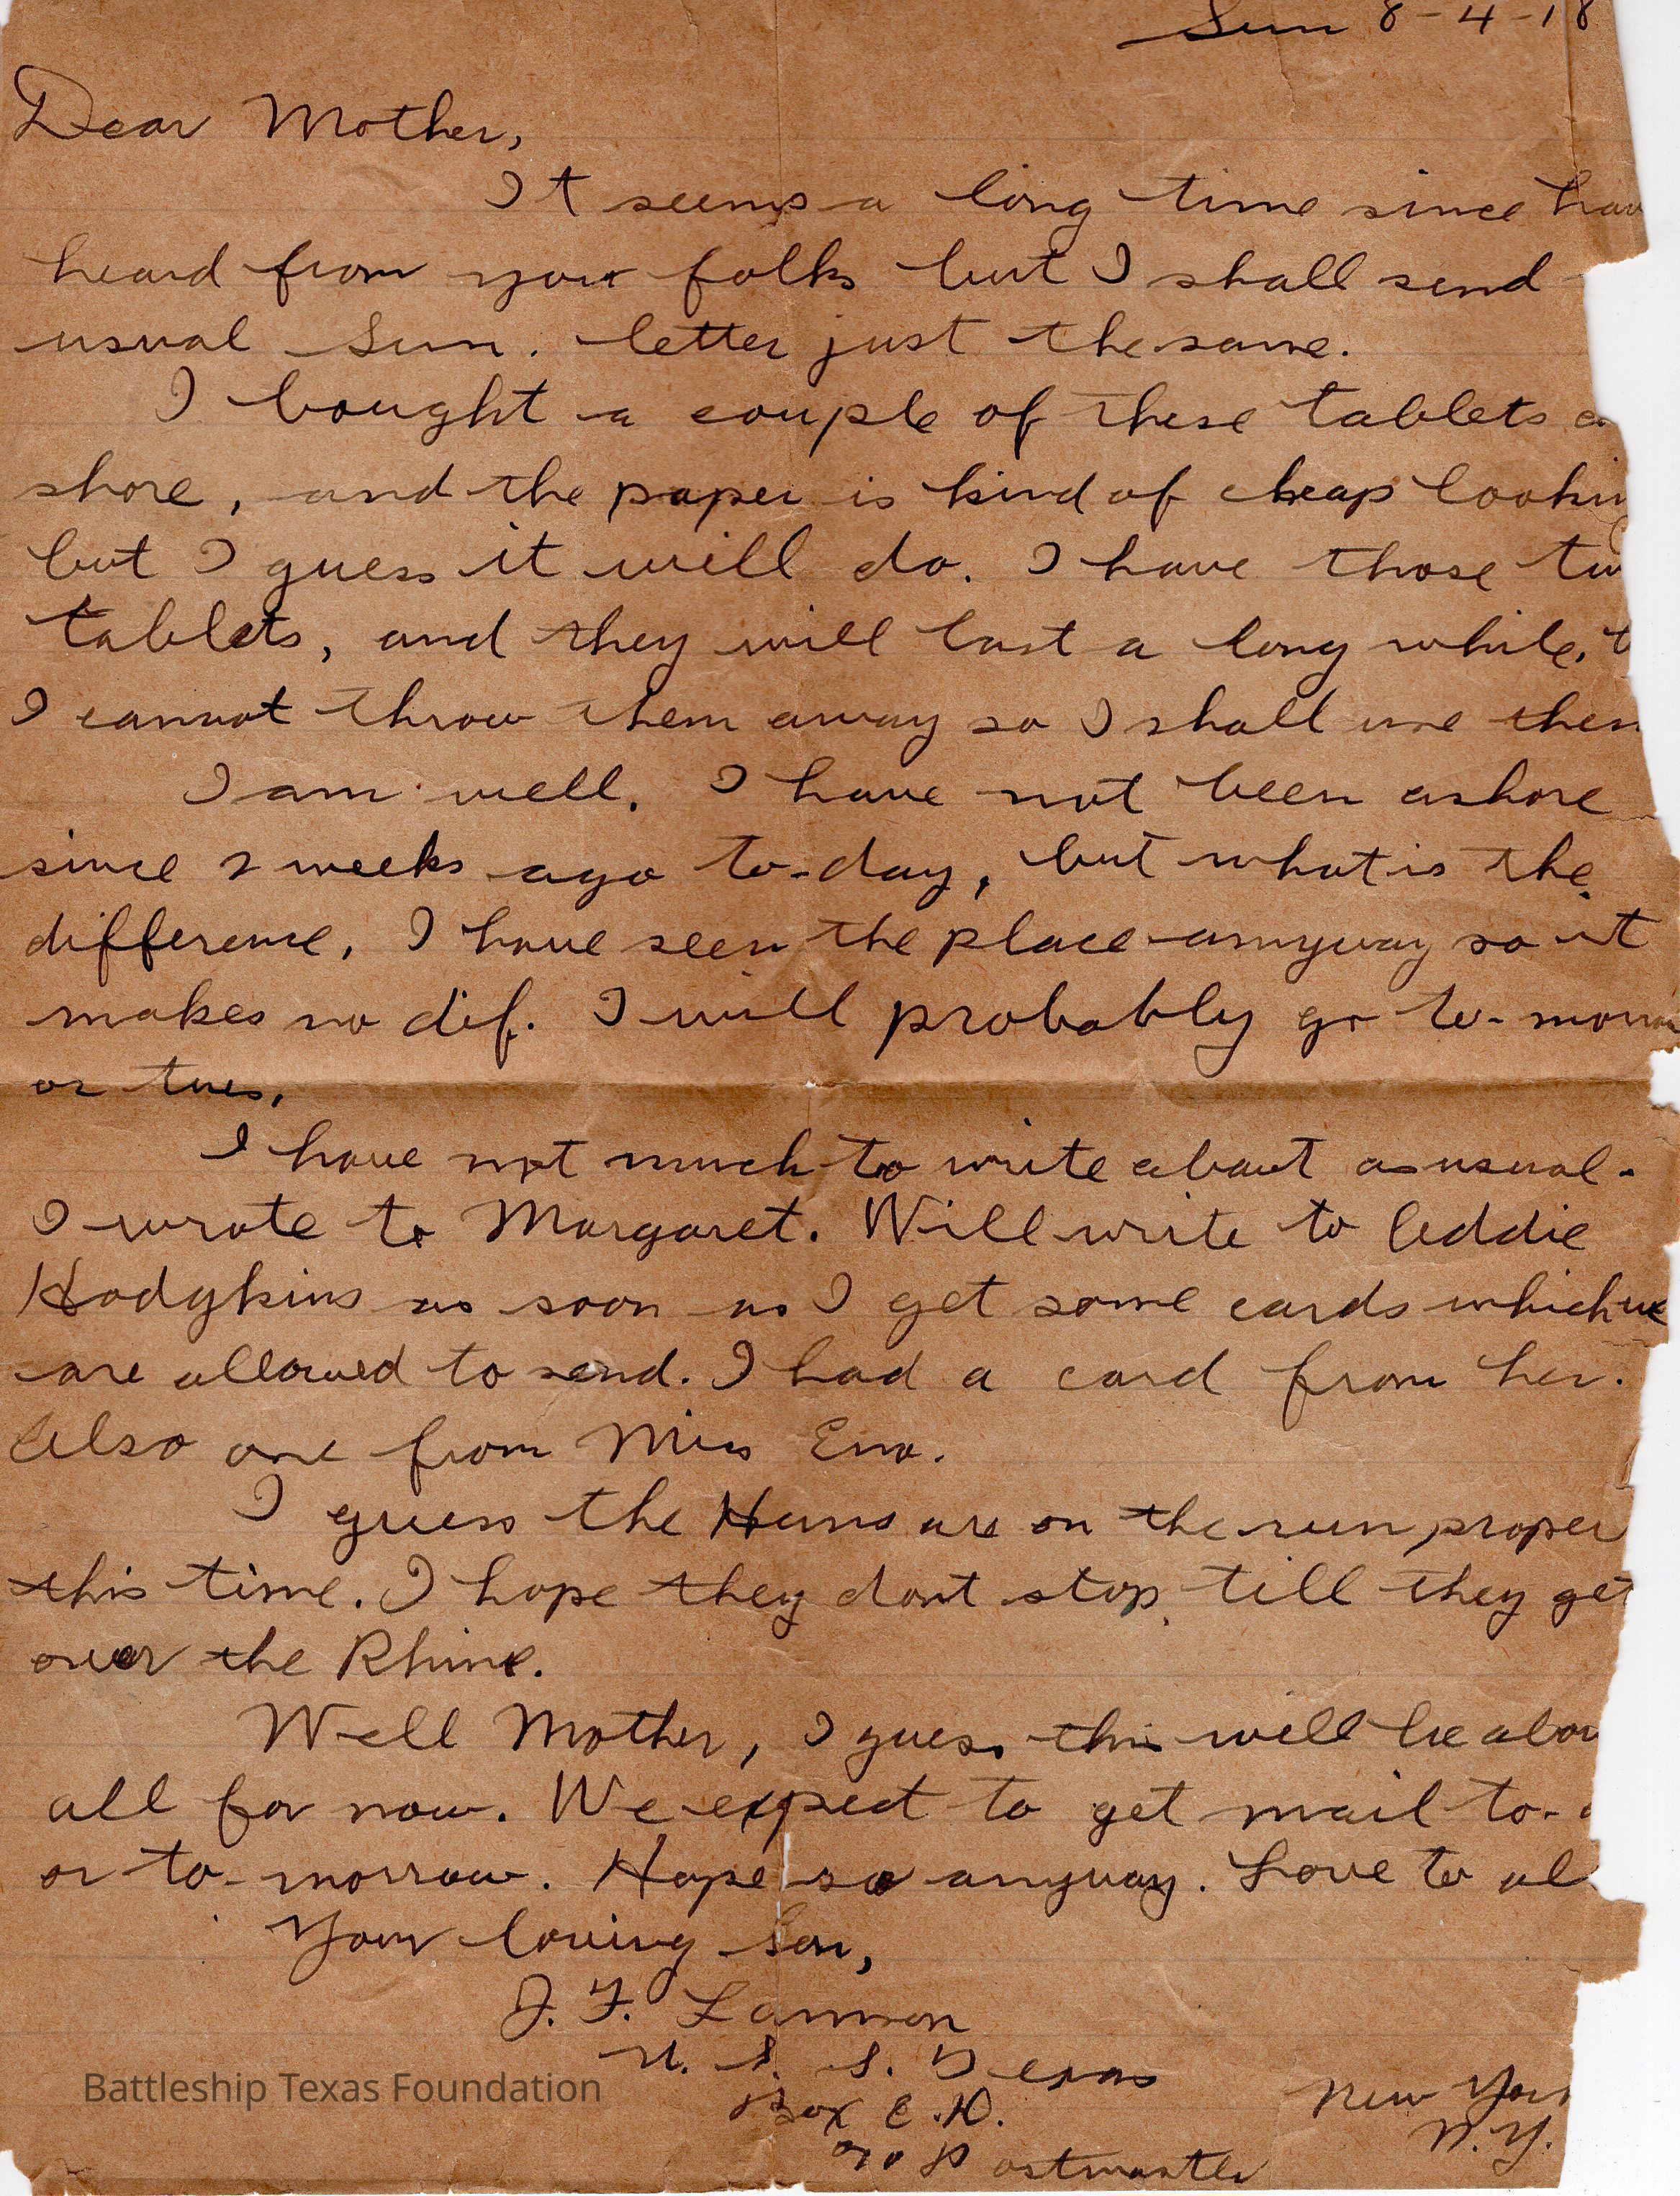 Sun 8-4-18
Dear Mother,
It seems a long time since hav
heard from you folks but I shall send
usual Sun. letter just the same.
I bought a couple of these tablets a
shore, and the paper is kind of cheap lookin
but I guess it will do. I have those tw
tablets, and they will last a long while, b
I cannot throw them away so I shall use them
I am well. I have not been ashore
since 2 weeks ago to-day, but what is the
difference, I have seen the place anyway so it
makes no dif. I will probably go to-morrow
or tues.
I have not much to write about as usual.
I wrote to Margaret. Will write to Addie
Hodgkins as soon as I get some cards which we
are allowed to send. I had a card from her.
Also one from Miss Eno.
I guess the Huns are on the run proper
this time. I hope they dont stop till they get
over the Rhine.
Well Mother, I guess this will be abou
all for now. We expect to get mail to-d
or to-morrow. Hope so anyway. Love to al
Your loving Son,
J. F. Lannon
U. S. S. Texas
Box E.D.
c/o Postmaster
New York
N.Y.
Battleship Texas Foundation